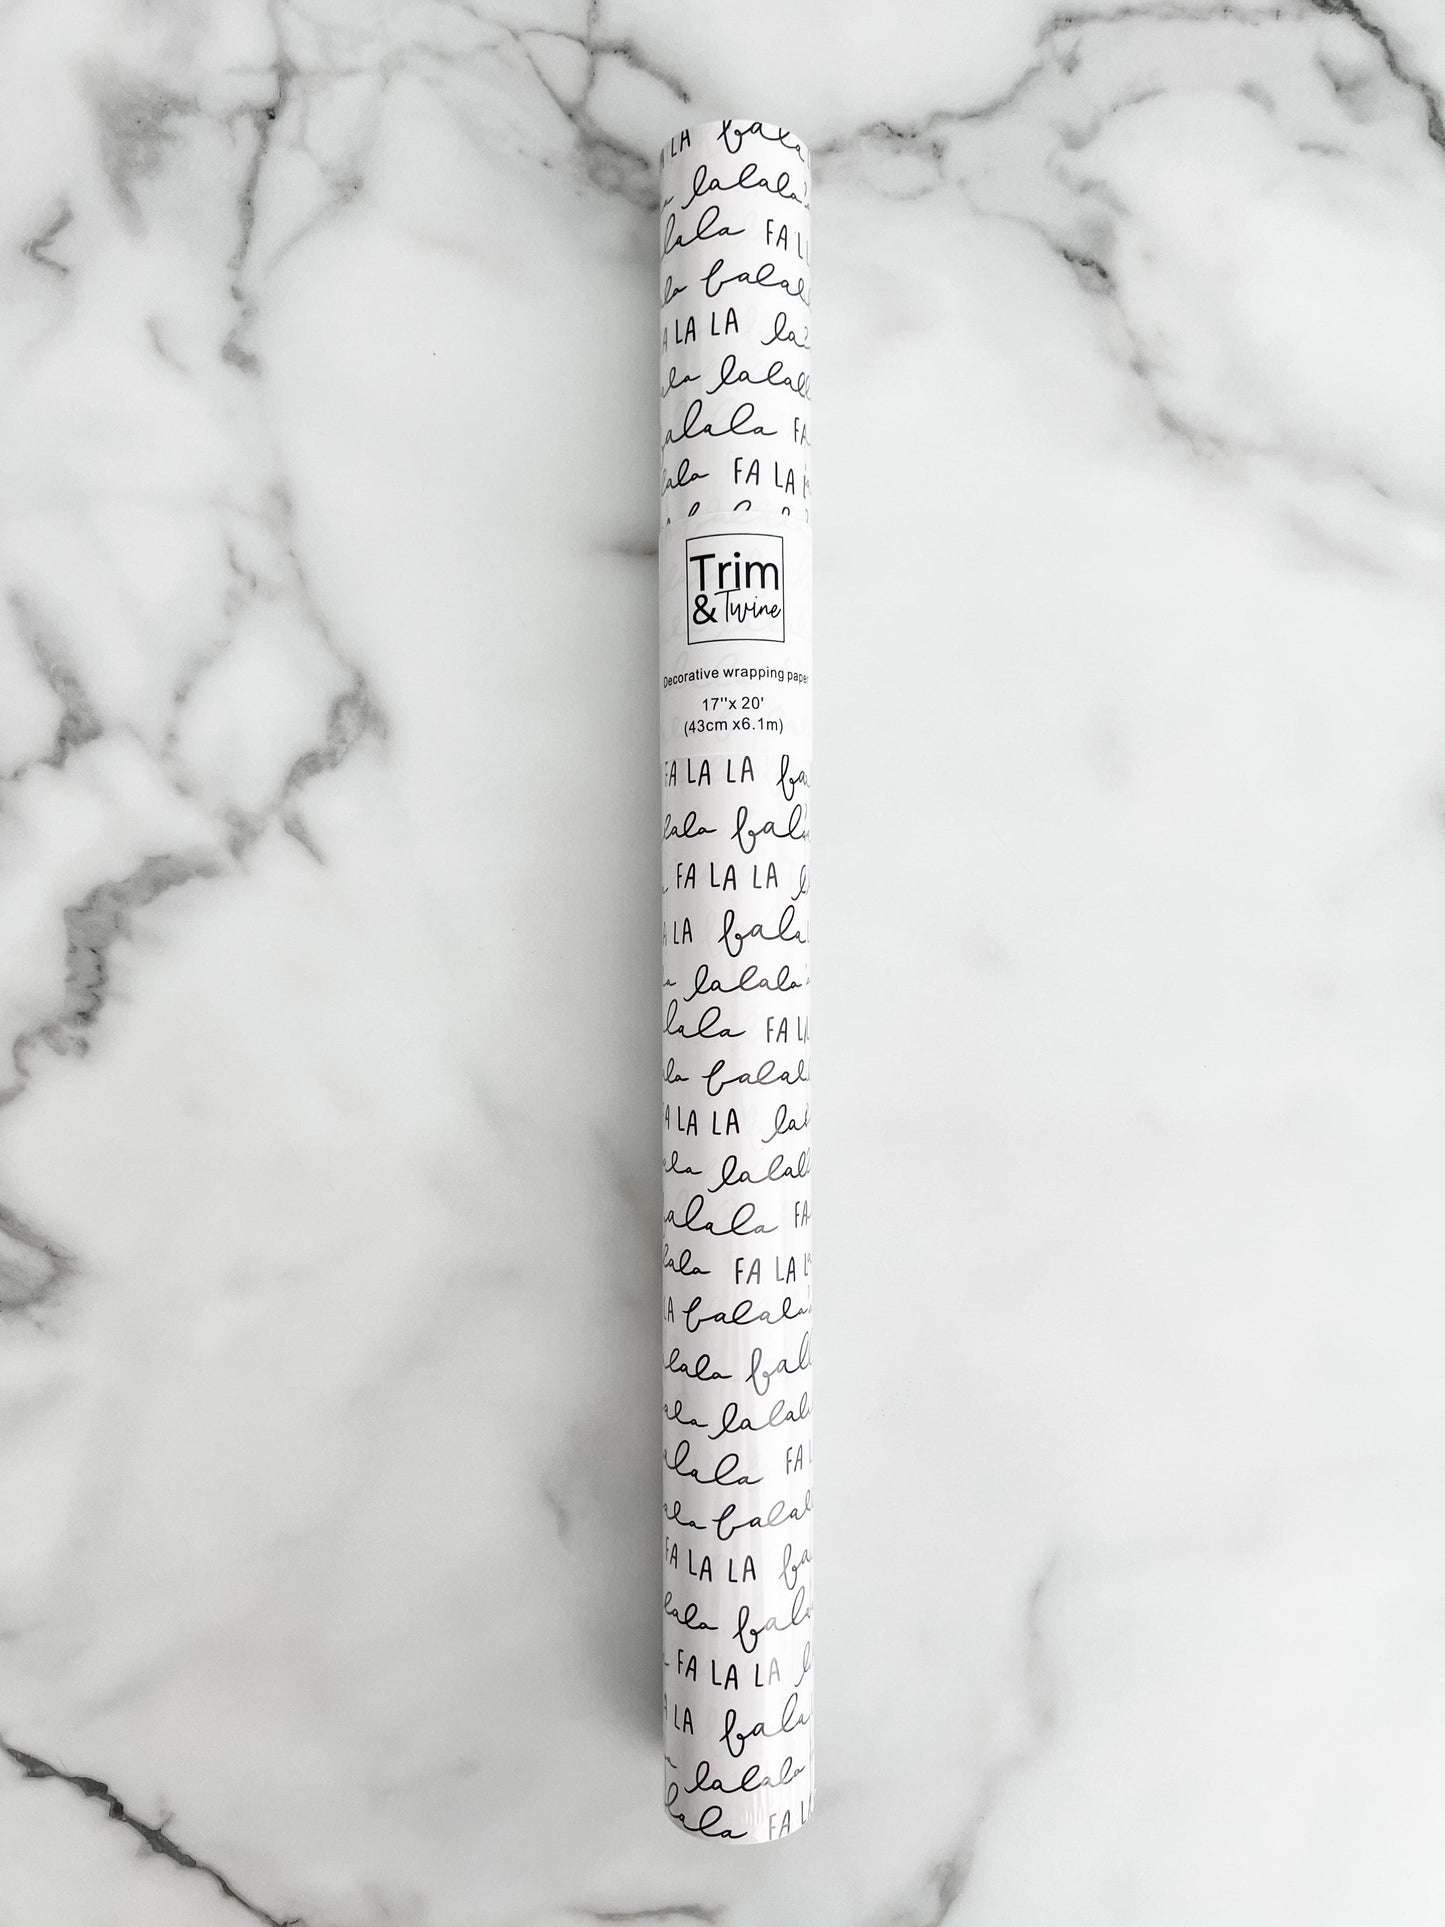 LA fala
lalala
lala FA L
la falal
LA LA la
la lalal
alala FA
lala FA LA
Trim
& Twine
Decorative wrapping paper
17''x 20'
(43cm x6.1m)
FA LA LA fa
lala fal
FA LA LA
LA fala
lalala
lala FA LA
la falal
A LA LA la
la lalal
alala FA
lala FA LA L
LA falala
lala fal
ala lalal
alala FA
ala falal
FA LA LA fa
lala fal
FA LA LA l
LA fala
lalala
lala FA L